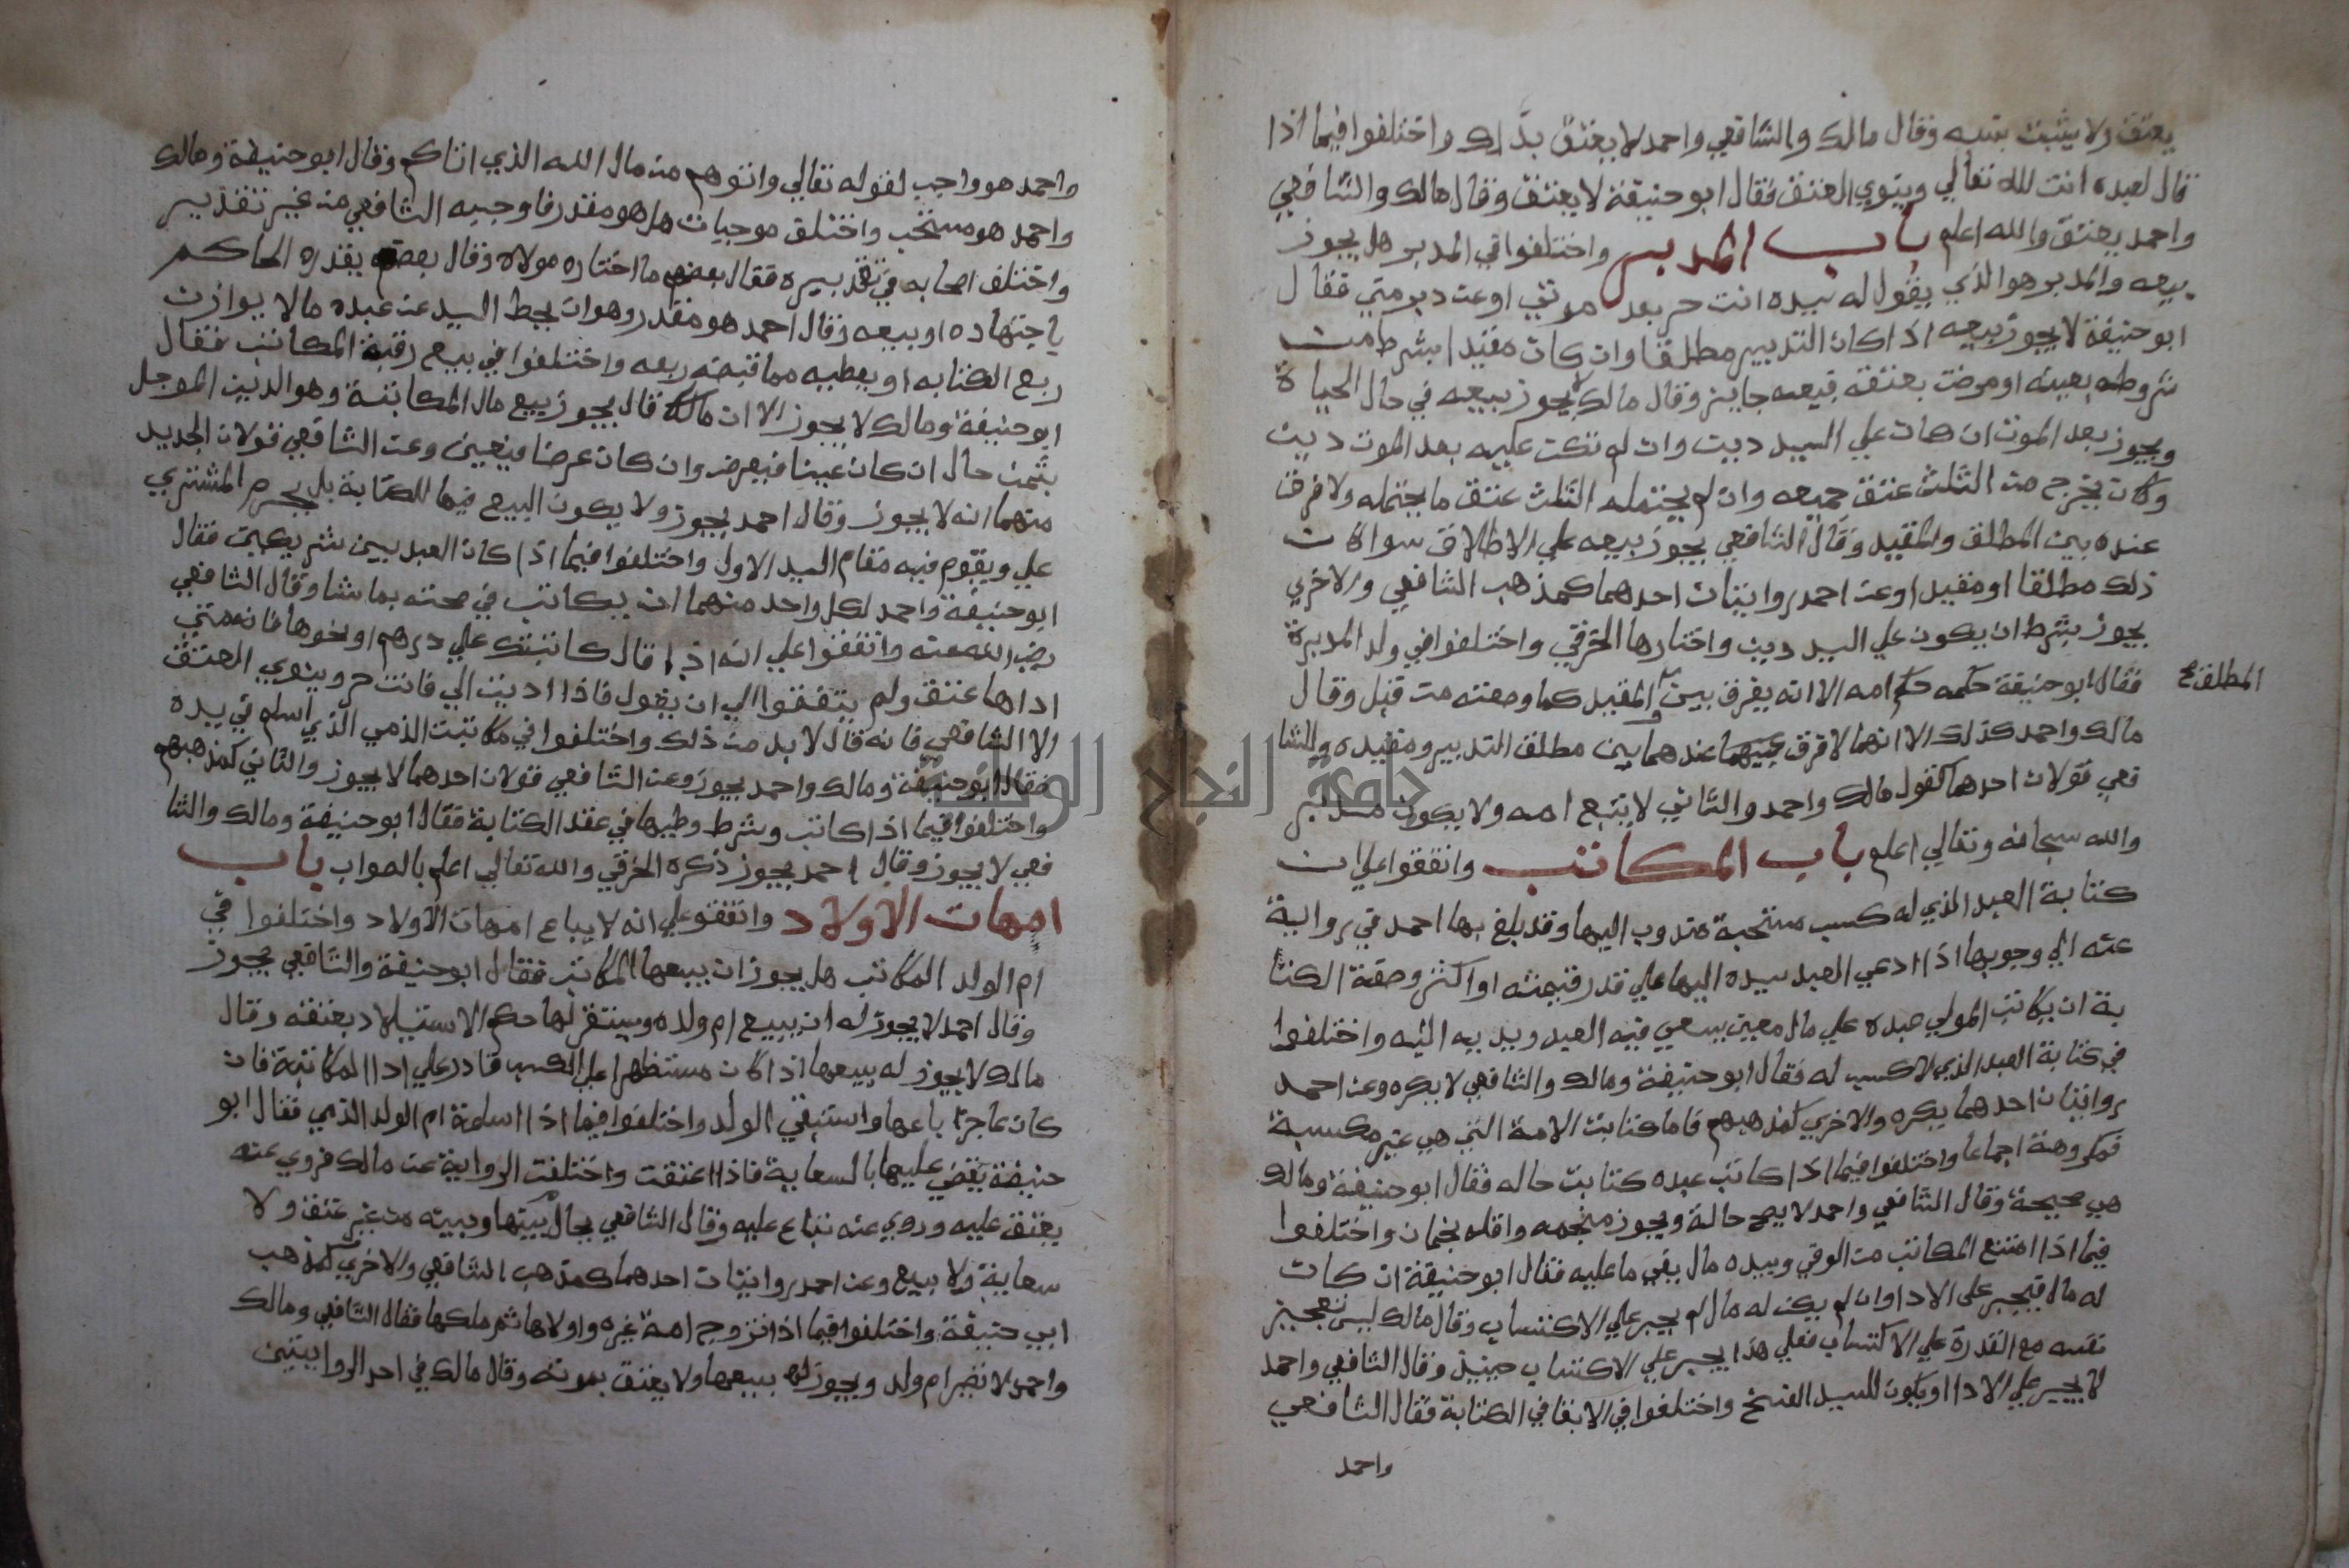 يعتق ولا يثبت نسبه وقال مالك والشافعي واحمد لا يعتق بذلك واختلفوا فيما اذا
قال لعبده انت لله تعالي وينوي العتق فقال ابو حنيفة لا يعتق وقال مالك والشافعي
واحمد يعتق والله اعلم باب المدبر واختلفوا في المدبر هل يجوز
بيعه والمدبر هو الذي يقول له سيده انت حر بعد موتي او عن دبر مني فقال
ابو حنيفة لا يجوز بيعه اذا كان التدبير مطلقا وان كان مقيدا بشرط من
شروطه بعينه او مرض بعتقه فبيعه جايز وقال مالك لا يجوز بيعه في حال الحياة
ويجوز بعد الموت ان كان علي السيد دين وان لم تكن عليه بعد الموت دين
وكان يخرج من الثلث عتق جميعه وان لم يحتمله الثلث عتق ما يحتمله ولا فرق
عنده بين المطلق والمقيد وقال الشافعي يجوز بيعه علي الاطلاق سوا كان
ذلك مطلقا او مقيدا وعن احمد روايتان احدهما كمذهب الشافعي والاخري
يجوز بشرط ان يكون علي السيد دين واختارها الخرقي واختلفوا في ولد المدبرة
فقال ابو حنيفة حكمه حكم امه الا انه يفرق بين والمقيد كما وصفته من قبل وقال
المطلق صح
مالك واحمد كذلك الا انهما لا فرق عندهما بين مطلق التدبير ومقيده وللشا
فعي قولان احدهما كقول مالك واحمد والثاني لا يتبع امه ولا يكون مدبر
والله سبحانه وتعالي اعلم باب المكاتب واتفقوا علي ان
كتابة العبد الذي له كسب مستحبة مندوب اليها وقد بلغ بها احمد في رواية
عنه الي وجوبها اذا ادعي العبد سيده اليها علي قدر قيمته او اكثر وصفة الكتا
بة ان يكاتب المولي عبده علي مال معين يسعي فيه العبد ويديه اليه واختلفوا
في كتابة العبد الذي لا كسب له فقال ابو حنيفة ومالك والشافعي لا يكره وعن احمد
روايتان احدهما يكره والاخري كمذهبهم فاما كتابت الامة التي هي غير مكسبة
فمكروهة اجماعا واختلفوا فيما اذا كاتب عبده كتابت حاله فقال ابو حنيفة ومالك
هي صحيحة وقال الشافعي واحمد لا يصح حالة ويجوز منجمه واقله نجمان واختلفوا
فيما اذا امتنع المكاتب من الوفي وبيده مال يفي ما عليه فقال ابو حنيفة ان كان
له مال فيجبر علي الادا وان لم يكن له مال لم يجبر علي الاكتساب وقال مالك ليس تعجيز
نفسه مع القدرة علي الاكتساب فعلي هذا يجبر علي الاكتساب حينيذ وقال الشافعي واحمد
لا يجبر علي الادا ويكون للسيد الفسخ واختلفوا في الايتا في الكتابة فقال الشافعي
واحمد
واحمد هو واجب لقوله تعالي واتوهم من مال الله الذي اتاكم وقال ابو حنيفة ومالك
واحمد هو مستحب واختلق موجبات هل هو مقدر فاوجبه الشافعي من غير تقدير
واختلف اصحابه في تقديره فقال بعضهم ما اختاره مولاه وقال بعضهم يقدره الحاكم
باجتهاده او بيعه وقال احمد هو مقدر وهو ان يحط السيد عن عبده ما لا يوازن
ربع الكتابه او يعطيه مما قبضه ربعه واختلفوا في بيع رقبة المكاتب فقال
ابو حنيفة ومالك لا يجوز الا ان مالك قال يجوز بيع مال المكاتبة وهو الدين الموجل
بثمن حال ان كان عينا فبعرض وان كان عرضا فبعين وعن الشافعي قولان الجديد
منهما انه لا يجوز وقال احمد يجوز ولا يكون البيع فيها للكتابة بل يجبر المشتري
علي ويقوم فيه مقام السيد الاول واختلفوا فيما اذا كان العبد بين شريكين فقال
ابو حنيفة واحمد لكل واحد منهما ان يكاتب في حصته بما شا وقال الشافعي
رضي الله عنه واتفقوا علي انه اذا قال كاتبتك علي درهم او نحوها فانه متي
اداها عتق ولم يتفقوا الي ان يقول فاذا اديت الي فانت حر وينوي العتق
الا الشافعي فانه قال لا بد من ذلك واختلفوا في مكاتبت الذمي الذي اسلم في يده
فقال ابو حنيفة ومالك واحمد يجوز وعن الشافعي قولان احدهما لا يجوز والثاني كمذهبهم
واختلفوا فيما اذا كاتب وشرط وطيها في عقد الكتابة فقال ابو حنيفة ومالك والشا
فعي لا يجوز وقال احمد يجوز ذكره الخرقي والله تعالي اعلم بالصواب باب
امهات الاولاد واتفقو علي انه لا يباع امهات الاولاد واختلفوا في
ام الولد المكاتب هل يجوز ان يبيعها المكاتب فقال ابو حنيفة والشافعي يجوز
وقال احمد لا يجوز له ان يبيع ام ولده ويستقر لها حكم الاستيلاد بعتقه وقال
مالك لا يجوز له بيعها اذا كان مستظهرا علي الكسب قادر علي ادا المكاتبة فان
كان عاجزا باعها واستبقي الولد واختلفوا فيما اذا اسلمة ام الولد الذمي فقال ابو
حنيفة يقضي عليها بالسعاية فاذا اعتقت واختلفت الرواية عن مالك فروي عنه
يعتق عليه وروي عنه تباع عليه وقال الشافعي يحال بينها وبينه من غير عتق ولا
سعاية ولا بيع وعن احمد روايتان احدهما كمذهب الشافعي والاخري كمذهب
ابي حنيفة واختلفوا فيما اذا تزوج امة غيره واولاها ثم ملكها فقال الشافعي ومالك
واحمد لا تصير ام ولد ويجوز له بيعها ولا يعتق بموته وقال مالك في احد الروايتين
جامعة النجاح الوطنية